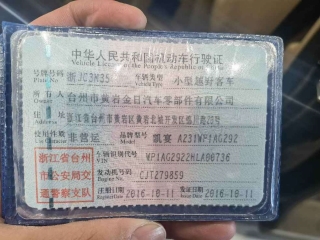 中华人民共和国机动车行驶证
Vehicle License of the People's Republic of China
号牌号码 浙JC3M35 车辆类型 小型越野客车
Plate No. Vehicle Type
所有人 台州市黄岩金日汽车零部件有限公司
Owner
住址
Address
使用性质 非营运 品牌型号 凯宴 WP1AG292
Use Character Model
浙江省台州
市公安局交
通警察支队
车辆识别代号 WP1AG2922HLA06736
VIN
发动机号码 CJT279859
Engine No.
注册日期 2016-10-11 发证日期 2016-10-11
Register Date Issue Date